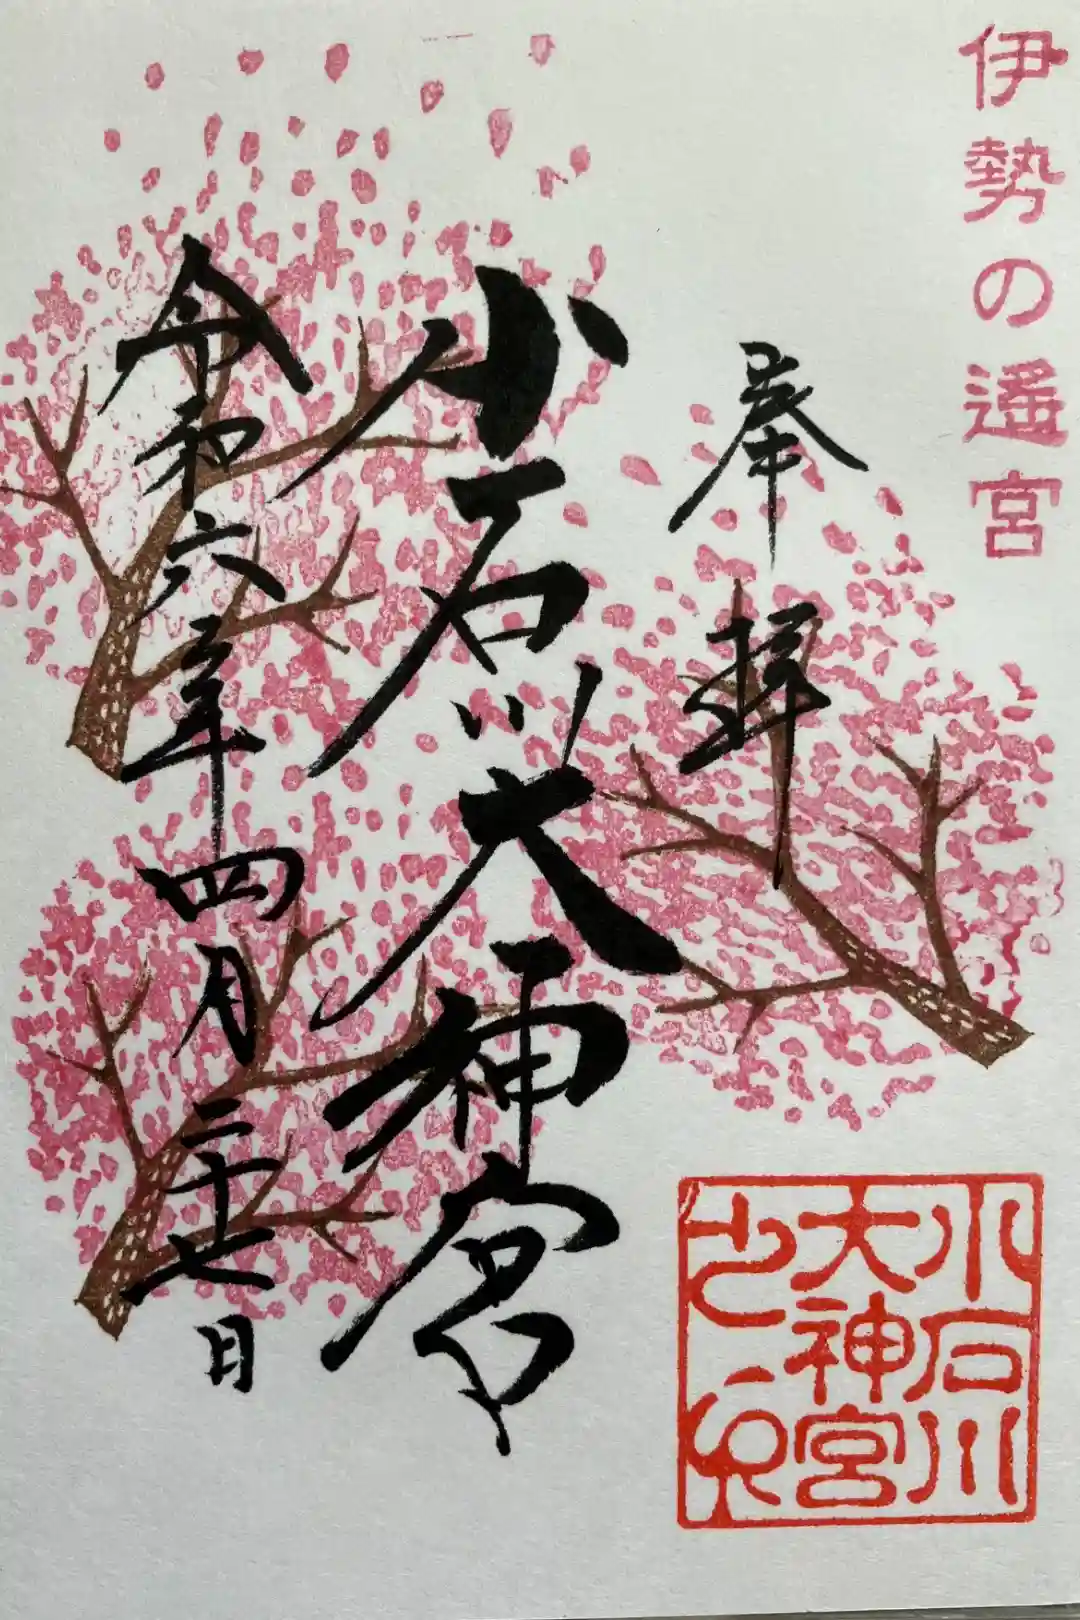 伊勢の遥宮
奉拝
小石川大神宮
令和六年四月二十七日
小石川
大神宮
之印